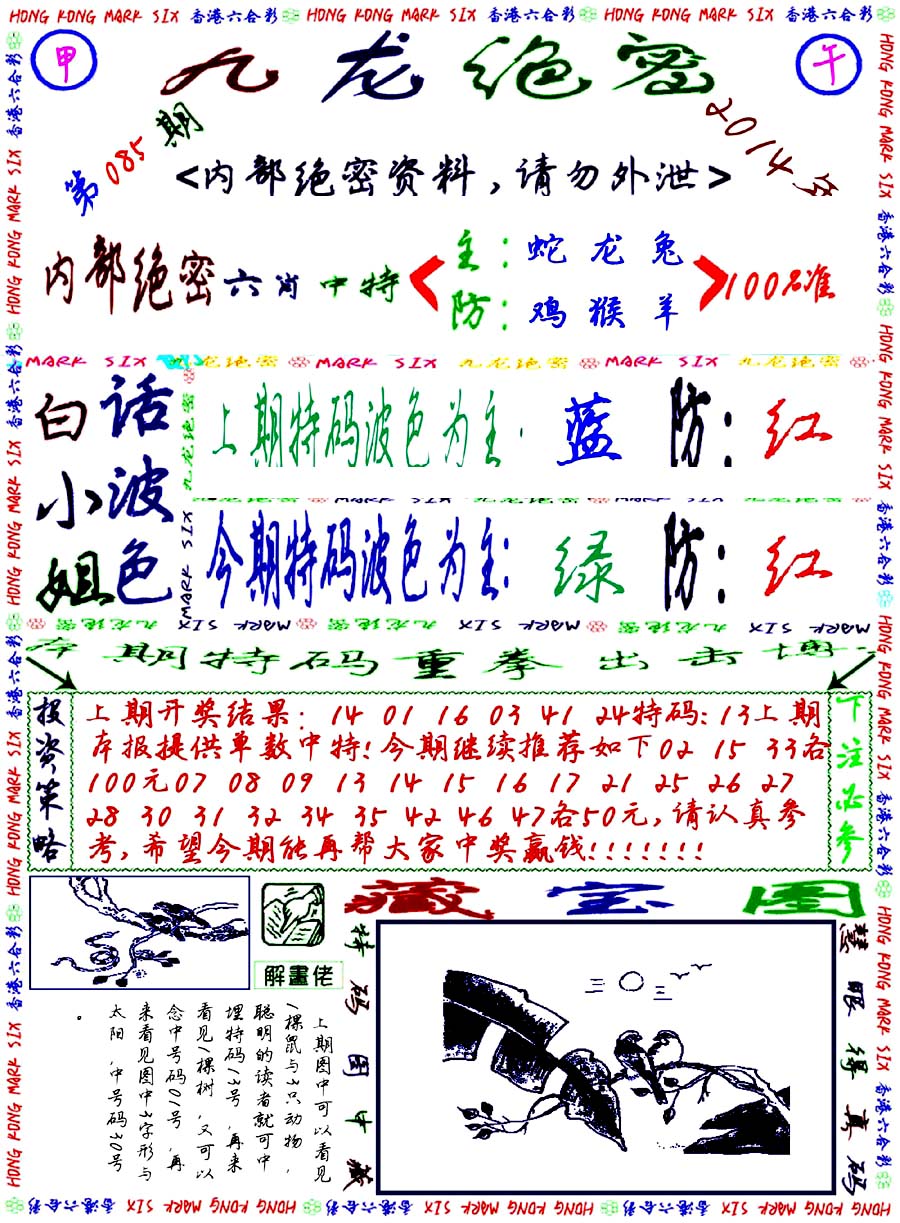 HONG KONG MARK SIX 香港六合彩 HONG KONG MARK SIX 香港六合彩 HONG KONG MARK SIX 香港六合彩
甲
九龙绝密
午
第085期
2014年
<内部绝密资料,请勿外泄>
内部绝密六肖中特
主:蛇 龙 兔
防:鸡 猴 羊
100%准
MARK SIX 九龙绝密 MARK SIX 九龙绝密 MARK SIX 九龙绝密
白话
小波
姐色
九龙绝密
MARK SIX
上期特码波色为主:蓝 防:红
今期特码波色为主:绿 防:红
九龙绝密 MARK SIX 九龙绝密 MARK SIX 九龙绝密 MARK SIX
本期特码重拳出击博
投资策略
上期开奖结果: 14 01 16 03 41 24特码:13上期
本报提供单数中特!今期继续推荐如下02 15 33各
100元07 08 09 13 14 15 16 17 21 25 26 27
28 30 31 32 34 35 42 46 47各50元,请认真参
考,希望今期能再帮大家中奖赢钱!!!!!!!
下注必参
解畫佬
藏宝图
特码图中藏
慧眼得真码
上期图中可以看见
1棵鼠与3只动物,
聪明的读者就可中
埋特码13号,再来
看见1棵树,又可以
念中号码01号,再
来看见图中3字形与
太阳,中号码30号
。
HONG KONG MARK SIX 香港六合彩 HONG KONG MARK SIX 香港六合彩 HONG KONG MARK SIX 香港六合彩